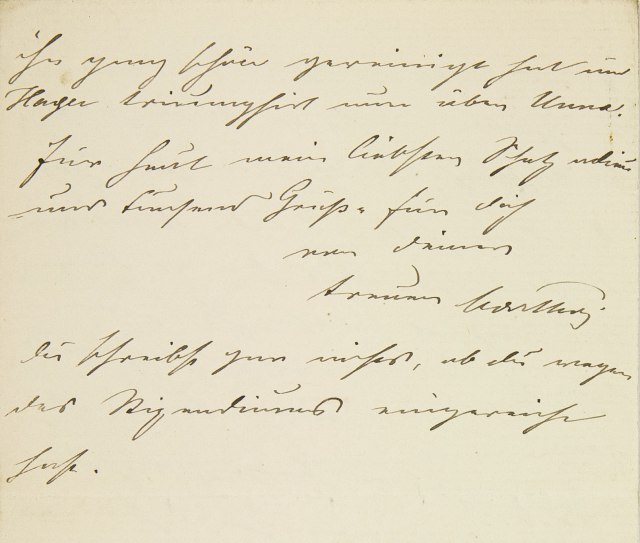 ihn ganz schön gereinigt hat und
Hager triumphirt nun über Unna.
Für heut mein liebster Schatz adieu
und tausend Grüße für dich
von deiner
treuen
du schreibst gar nichts, ob du wegen
des Stipendiums eingereicht
hast.